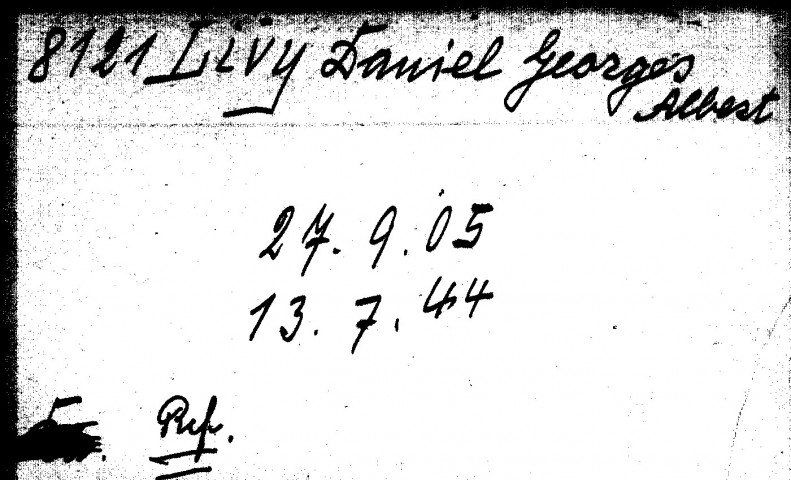 8121 Livy Daniel Georges
Albert
27. 9. 05
13. 7. 44
Ref.